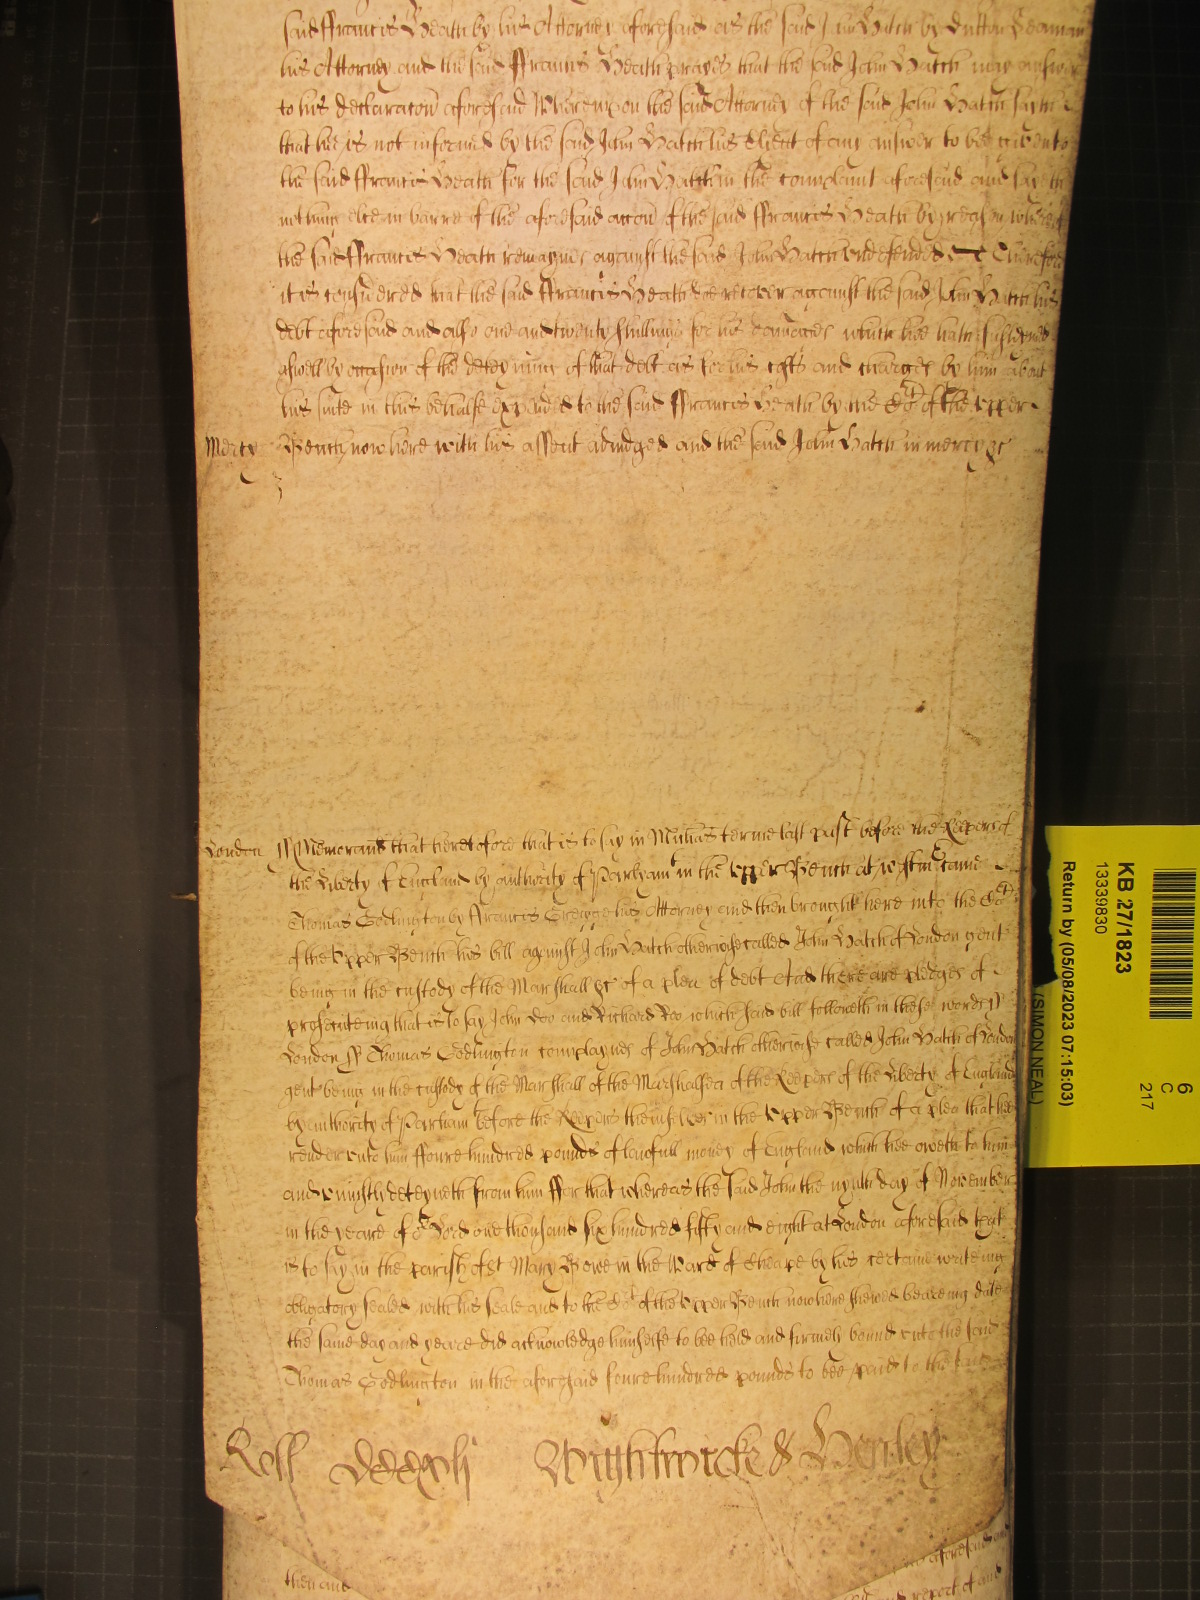 said Francis Heath by his Attorney aforesaid as the said John Hatch by Dutton Seaman
his Attorney and the said Francis Heath prayes that the said John Hatch may answer
to his declaracon aforesaid Whereupon the said Attorney of the said John Hatch sayth
that hee is not informed by the said John Hatch his Client of any answer to bee given to
the said ffrancis Heath for the said John Hatch in the complaint aforesaid and sayeth
nothing else in barre of the aforesaid accon of the said ffrancis Heath by reason whereof
the said ffrancis Heath remaynes against the said John Hatch undefended Therefore
it is considered that the said ffrancis Heath doe recover against the said John Hatch his
debt aforesaid and also one and twenty shillings for his damages which hee hath susteined
aswell by occasion of the deteyning of that debt as for his costs and charges by him about
his suite in this behalfe expended to the said ffrancis Heath by the Cot of the upper
Mercy Bench now here with his assent adiudged and the said John Hatch in mercy &c
London Memorand that heretofore that is to say in Michas terme last past before the Keepers of
the Liberty of England by authority of Parlyamt in the upper Bench at Westm came
Thomas Codlington by ffrancis Gregge his Attorney and then brought here into the Cot
of the upper Bench his bill against John Hatch otherwise called John Hatch of London gent
being in the custody of the Marshall &c of a plea of debt And there are pledges of
prosecuteing that is to say John Doo and Richard Roo which said bill followeth in these words
London ss Thomas Codlington complaynes of John Hatch otherwise called John Hatch of London
gent being in the custody of the Marshall of the Marshalsea of the Keepers of the Liberty of England
by authority of Parliam before the Keepers themselves in the upper Bench of a plea that hee
render unto him ffoure hundred pounds of lawfull money of England which hee oweth to him
and uniustly deteyneth from him ffor that whereas the said John the nynth day of November
in the yeare of or Lord one thousand six hundred fifty and eight at London aforesaid that
is to say in the parish of St Mary Bowe in the Ward of Cheape by his certaine writeing
obligatory sealed with his seale and to the Cot of the upper Bench now here shewed beareing date
the same day and yeare did acknowledge himselfe to bee held and firmely bound unto the said
Thomas Codlington in the aforesaid foure hundred pounds to bee paid to the said
Roll Wightwicke & Henley
then and
aforesaid and
and report of and
KB 27/1823
13339830
Return by (05/08/2023 07:15:03)
(SIMON NEAL)
6
C
217